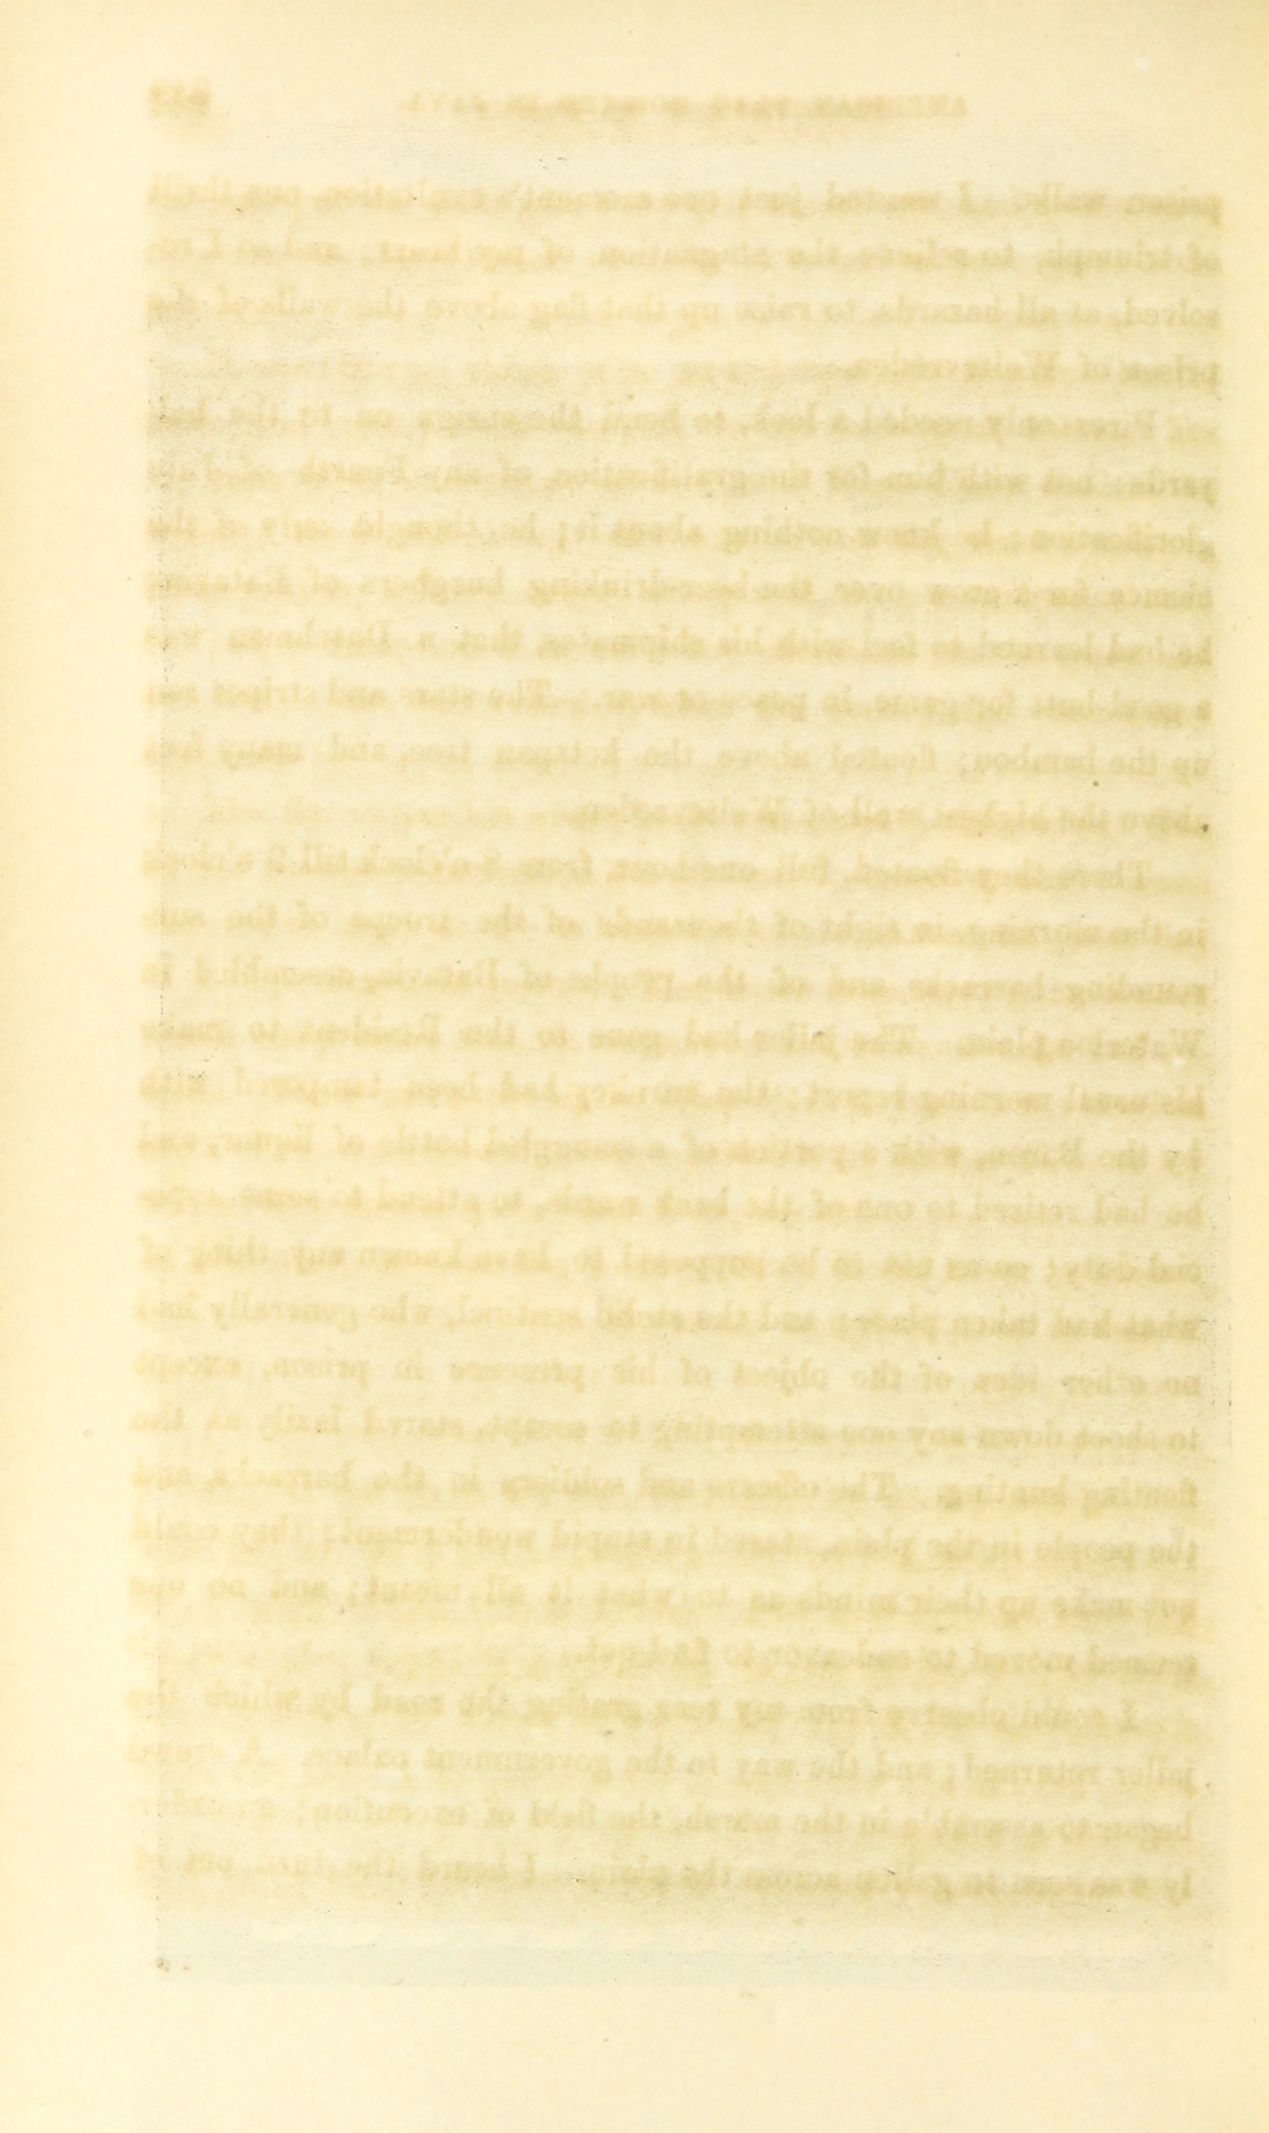 AMERICAN FLAG HOISTED IN JAVA.
prison walls. I wanted just one moment's exultation, one thrill
of triumph, to relieve the stagnation of my heart, and so I re-
solved, at all hazards, to raise up that flag above the walls of the
prison of Weltevreden.
only needed a look, to bend the ensign on to the hal-
yards; not with him for the gratification of any Fourth of July
glorification; he knew nothing about it; he thought only of the
chance for a crow over the beer-drinking burghers of Batavia;
he had learned to feel with his shipmates, that a Dutchman was
a good butt for game, in peace or war. The stars and stripes ran
up the bamboo; floated above the tree, and many feet
above the highest wall of Weltevreden.
There they floated, full one hour, from 8 o'clock till 9 o'clock
in the morning, in sight of thousands of the troops of the sur-
rounding barracks, and of the people of Batavia, assembled in
Waterloo plain. The jailer had gone to the Resident to make
his usual morning report; the had been tampered with
by the Baron, with a portion of a smuggled bottle of liquor, and
he had retired to one of the back wards, to attend to some espe-
cial duty; so as not to be supposed to have known any thing of
what had taken place; and the stolid sentinel, who generally had
no other idea of the object of his presence in prison, except
to shoot down any one attempting to escape, stared lazily at the
floating bunting. The officers and soldiers in the barracks, and
the people in the plain, stared in stupid wonderment; they could
not make up their minds as to what it all meant; and no one
seemed moved to endeavor to find out.
I could observe from my rear grating the road by which the
jailer returned; and the way to the government palace. A crowd
began to assemble in the marsh, the field of execution; an order-
ly was seen to gallop across the plain. I heard the turn out of